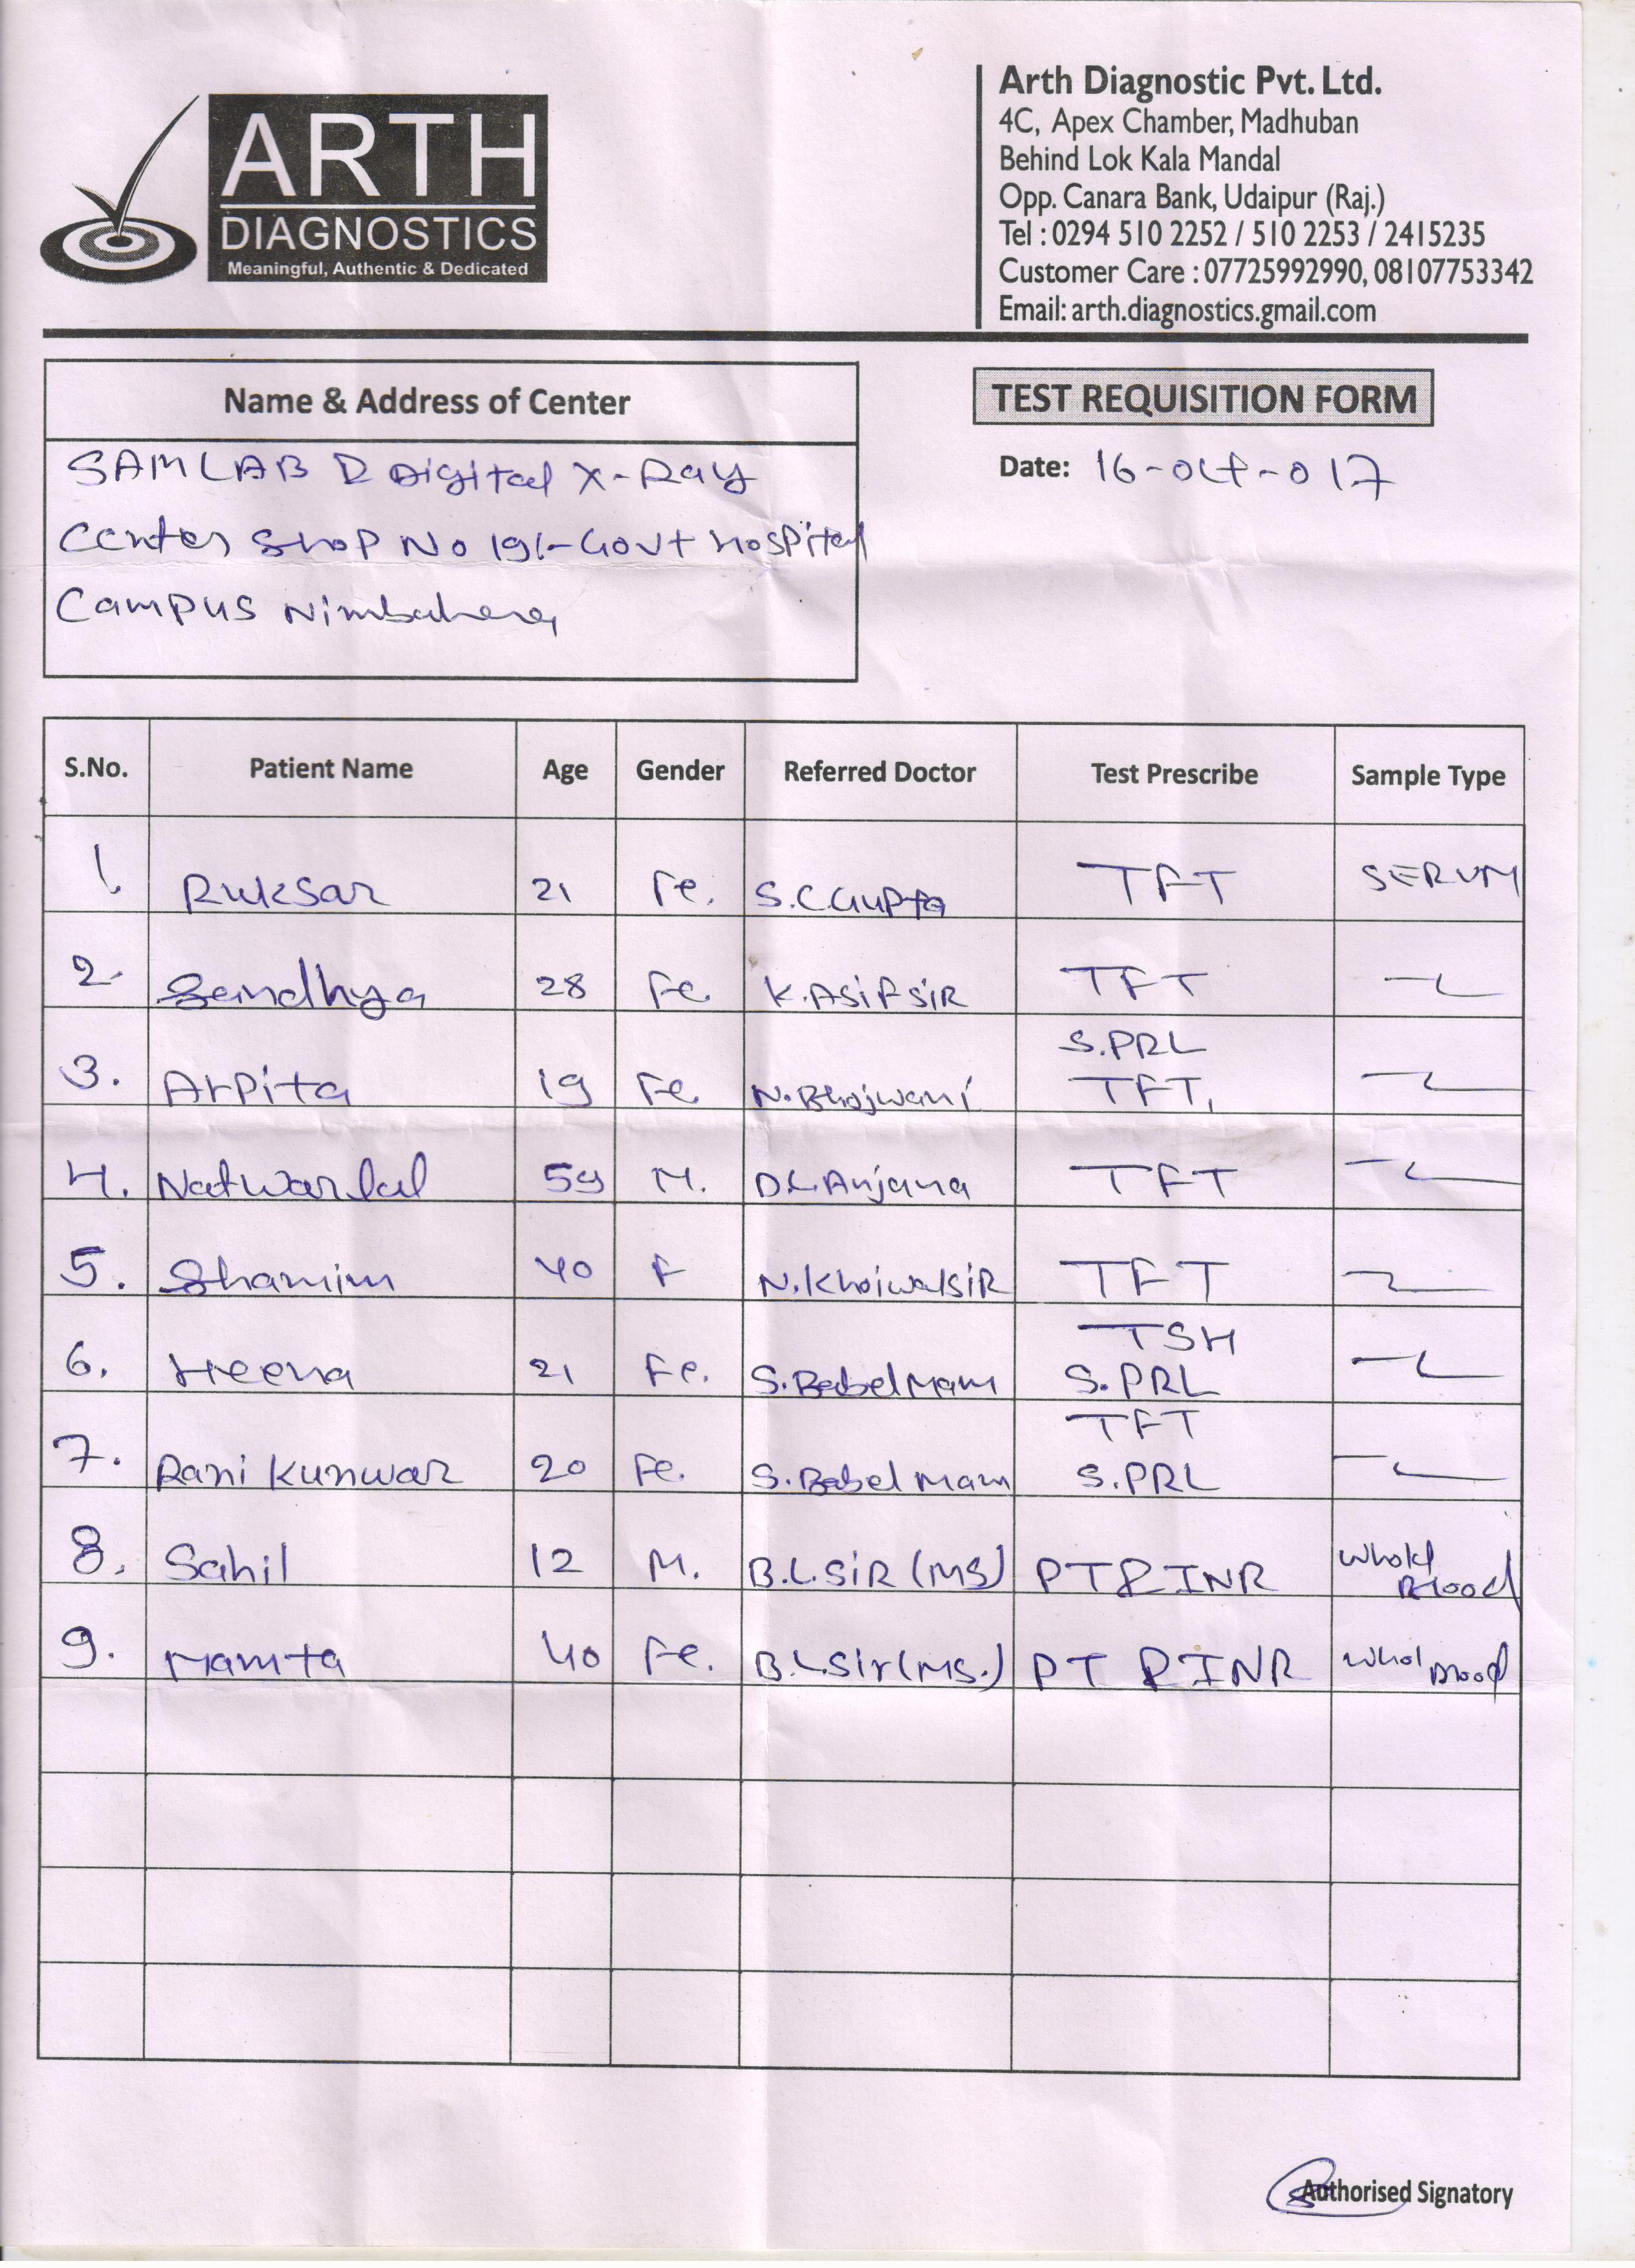 ARTH
DIAGNOSTICS
Meaningful, Authentic & Dedicated
Arth Diagnostic Pvt. Ltd.
4C, Apex Chamber, Madhuban
Behind Lok Kala Mandal
Opp. Canara Bank, Udaipur (Raj.)
Tel : 0294 510 2252 / 510 2253 / 2415235
Customer Care : 07725992990, 08107753342
Email: arth.diagnostics.gmail.com
Name & Address of Center
SAMLAB & Digital X-Ray
Center Shop No 19/- Govt Hospital
Campus Nimbahera
TEST REQUISITION FORM
Date: 16-Oct-017
S.No. Patient Name Age Gender Referred Doctor Test Prescribe Sample Type
1. Ruksar 21 Fe. S.C.Gupta TFT SERUM
2. Sandhya 28 Fe. K.Asif SIR TFT
3. Arpita 19 Fe. N.Bhojwani S.PRL TFT,
4. Natwarlal 59 M. D.L.Anjana TFT
5. Shamim 40 F N.Khoiwal SIR TFT
6. Heena 21 Fe. S.Babel Mam TSH S.PRL
7. Rani Kunwar 20 Fe. S.Babel Mam TFT S.PRL
8. Sahil 12 M. B.L.SiR (MS) PT & INR Whole Blood
9. Mamta 40 Fe. B.L.Sir (MS.) PT & INR Whol Blood
Authorised Signatory